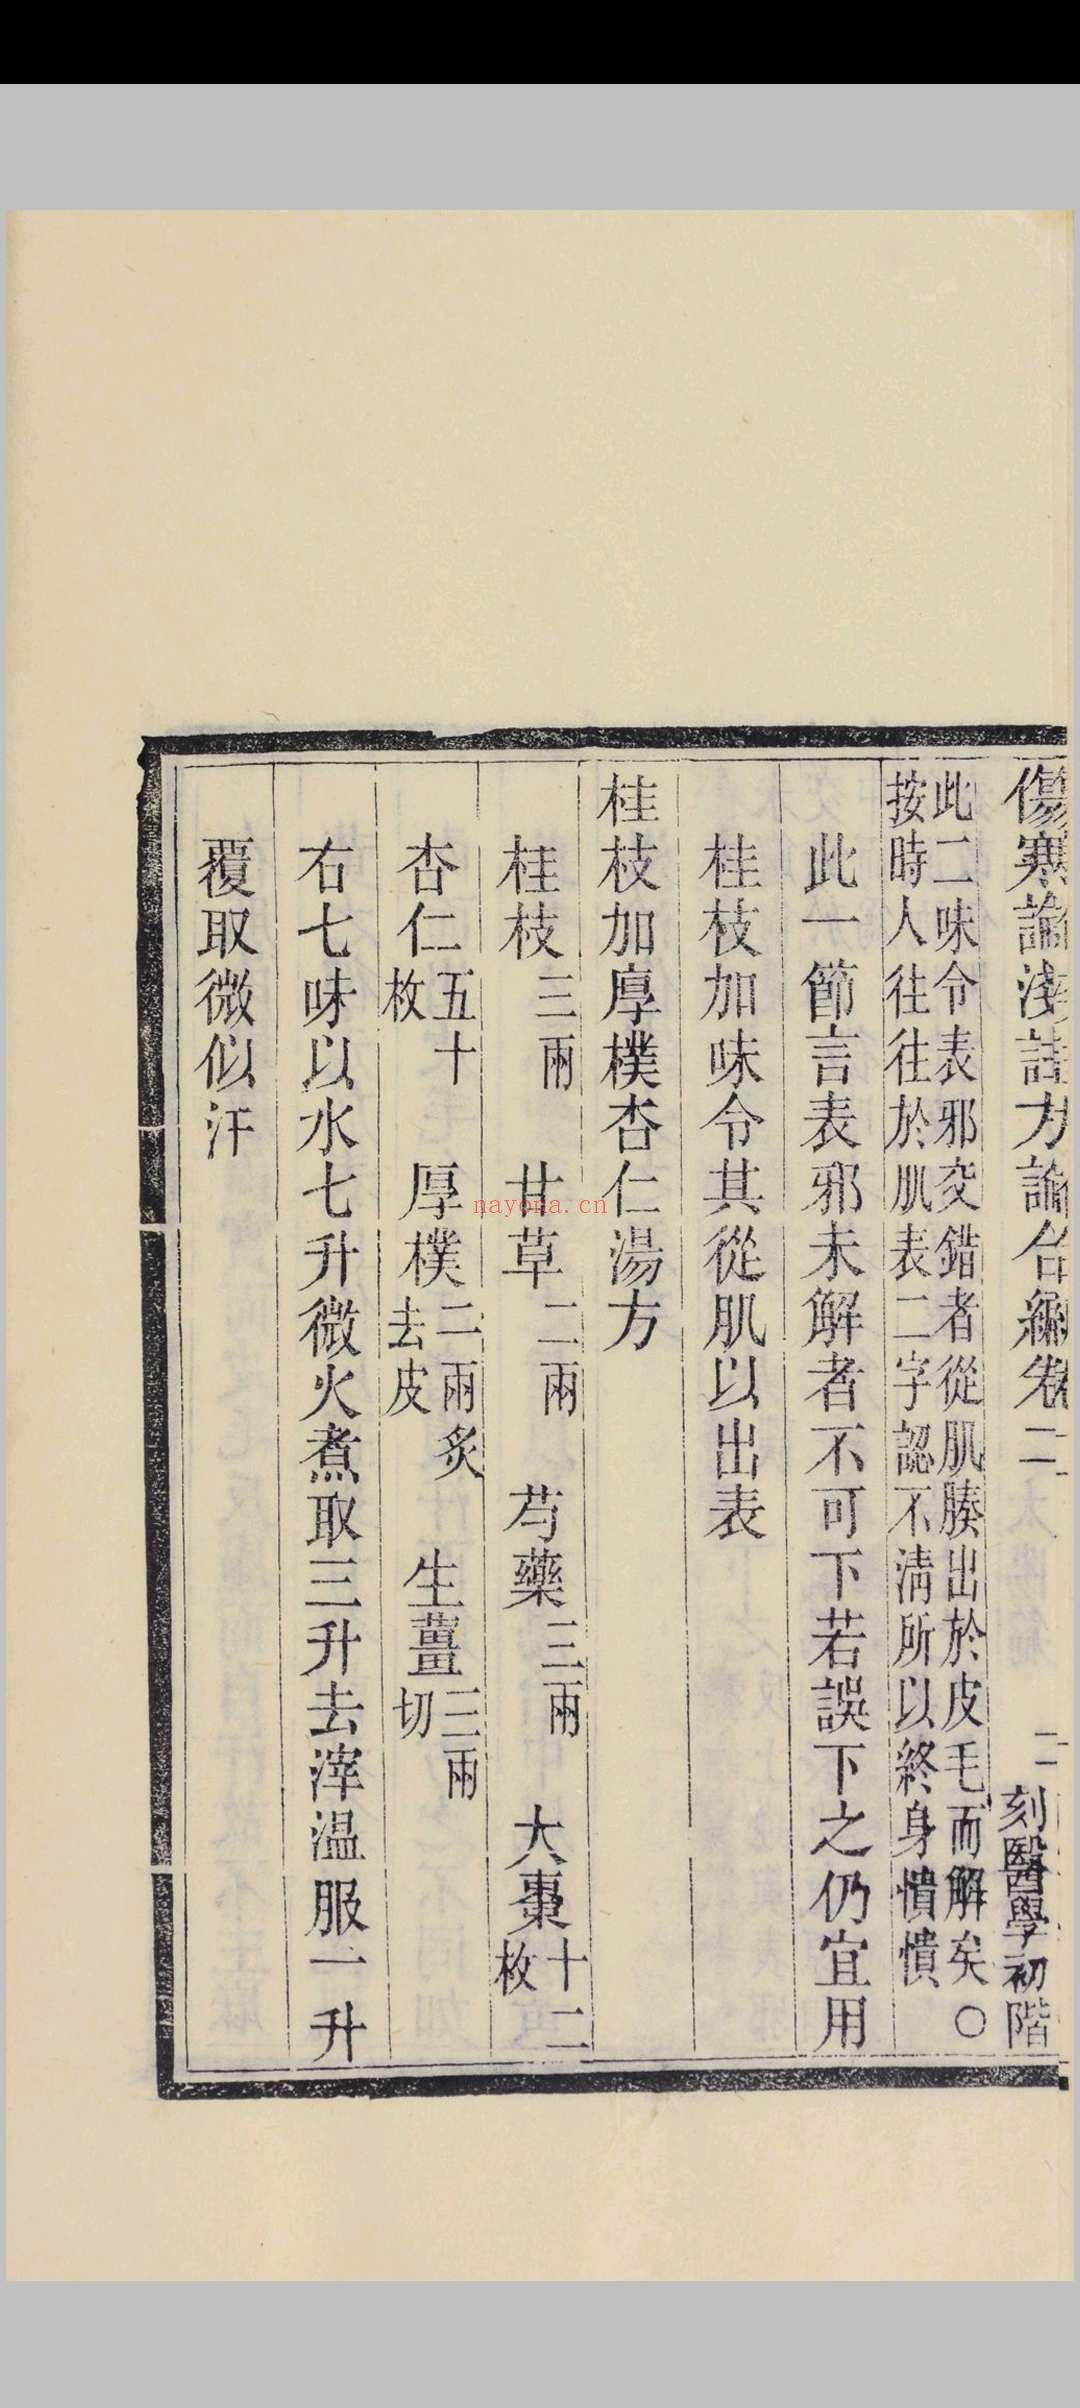 傷寒論淺註方論合編卷二 二 刻醫學初階
此二味令表邪交錯者從肌腠出於皮毛而解矣○
按時人往往於肌表二字認不清所以終身憒憒
此一節言表邪未解者不可下若誤下之仍宜用
桂枝加味令其從肌以出表
桂枝加厚樸杏仁湯方
桂枝三兩 甘草二兩 芍藥三兩 大棗十二枚
杏仁五十枚 厚樸二兩炙去皮 生薑三兩切
右七味以水七升微火煮取三升去滓溫服一升
覆取微似汗
nayona.cn